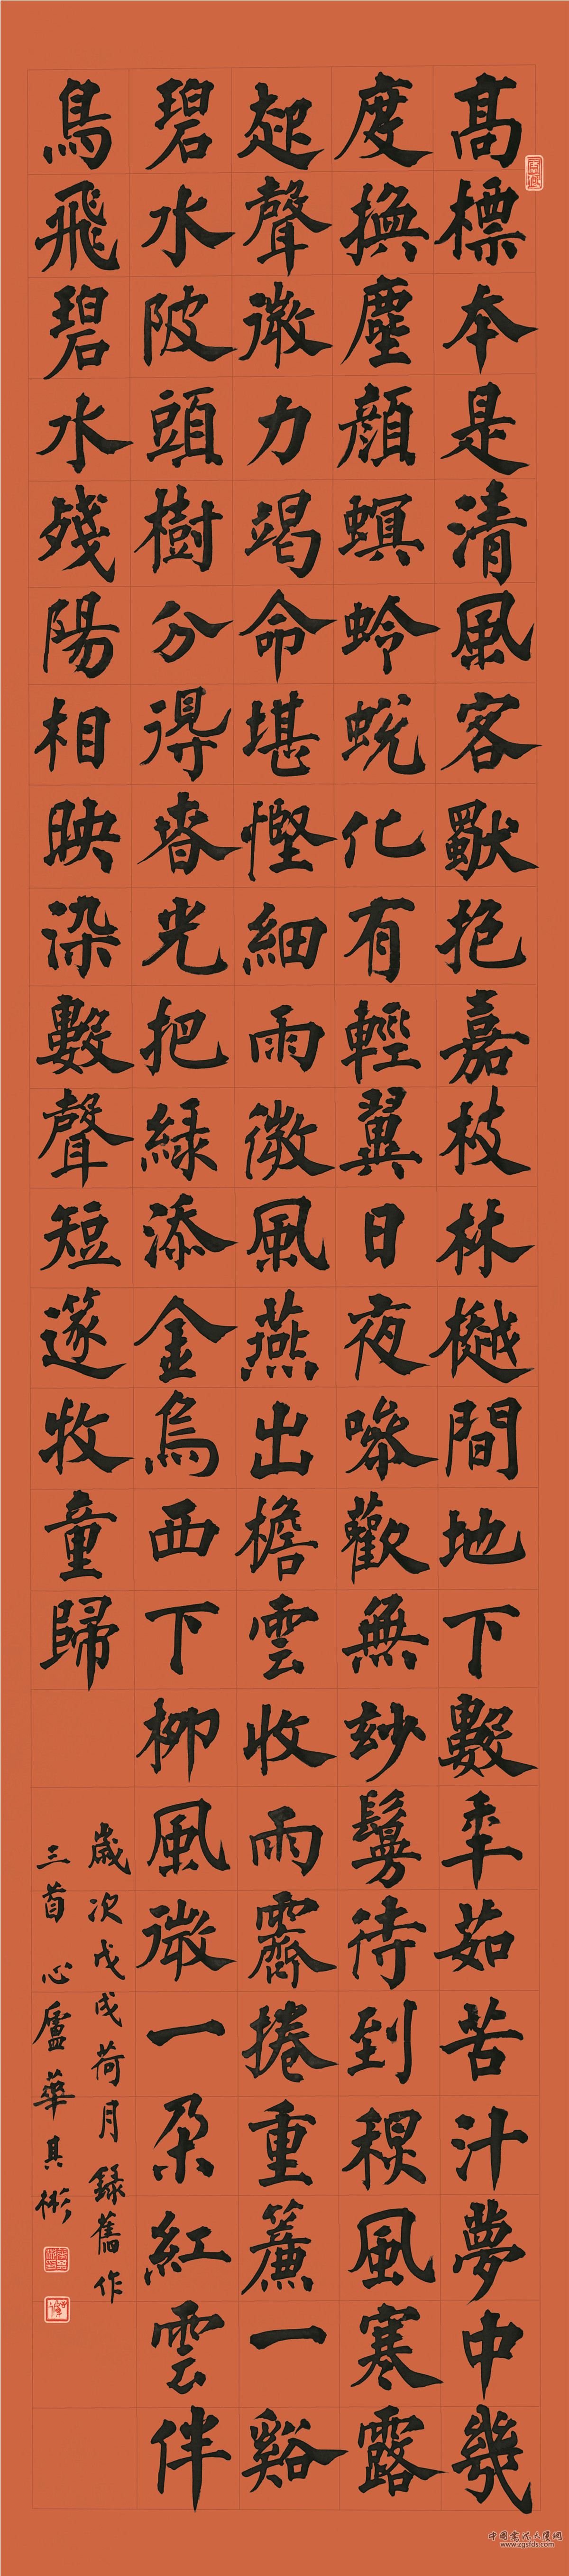 高標本是清風客獨抱嘉枝林樾間地下數年茹苦汁夢中幾
度換塵顏螟蛉蛻化有輕翼日夜噪歡無玅待到風寒露
起聲微力竭命堪慳細雨微風燕出檐雲收雨霽捲重簾一谿
碧水陂頭樹分得春光把緑添金烏西下柳風微一朵紅雲伴
鳥飛碧水殘陽相映染數聲短篴牧童歸
歲次戊戌荷月錄舊作
三首心廬華其彬
www.zgsfds.com